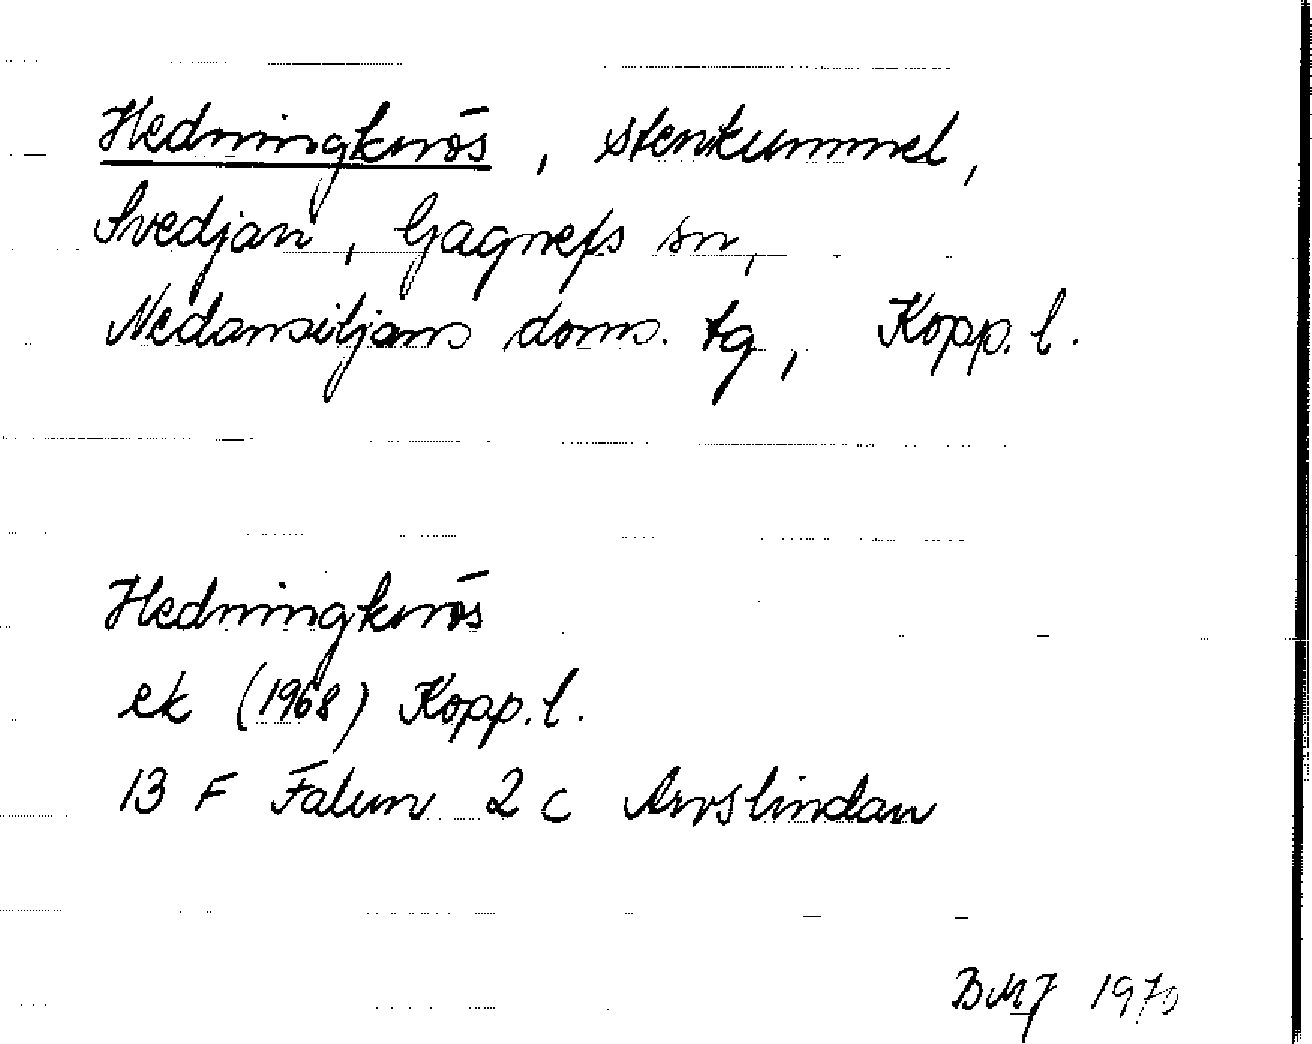 Hedningkrös, stenkummel,
Svedjan, Gagnefs sn,
Nedansiljans doms. tg, Kopp. l.
Hedningkrös
ek (1968) Kopp. l.
13 F Falun 2 c Arvslindan
BMJ 1970